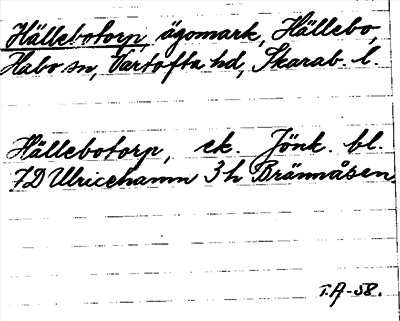 Hällebotorp, ägomark, Hällebo,
Habo sn, Vartofta hd, Skarab. l.
Hällebotorp, ek. Jönk. bl.
7D Ulricehamn 3h Brännåsen.
T.A-58.